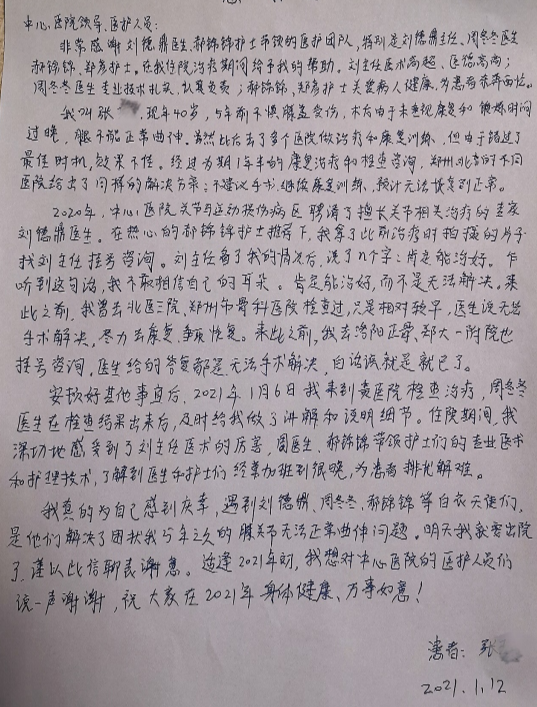 中心医院领导、医护人员:
非常感谢刘德鼎医生、郝锦锦护士带领的医护团队,特别是刘德鼎主任、周冬冬医生
郝锦锦、郑彦护士。在我住院治疗期间给予我的帮助。刘主任医术高超、医德高尚;
周冬冬医生专业技术扎实、认真负责;郝锦锦、郑彦护士关爱病人健康,为患者
我叫张 ,现年40岁,5年前不慎膝盖受伤,术后由于未重视康复和锻炼时间
过晚,腿不能正常曲伸。虽然此后去了多个医院做治疗和康复训练,但由于错过了
最佳时机,效果不佳。经过为期1年半的康复治疗和检查咨询,郑州、北京的不同
医院给出了同样的解决方案:不建议手术,继续康复训练,预计无法恢复到正常。
2020年,中心医院关节与运动损伤病区聘请了擅长关节相关治疗的专家
刘德鼎医生。在热心的郝锦锦护士推荐下,我拿了此前治疗时拍摄的片子
找刘主任挂号咨询。刘主任看了我的情况后,说了几个字:肯定能治好。乍
听到这句话,我不敢相信自己的耳朵。肯定能治好,而不是无法解决。来
此之前,我曾去北医三院、郑州市骨科医院检查过,只是相对较早,医生说无需
手术解决,尽力去康复、争取恢复。来此之前,我去洛阳正骨、郑大一附院也
挂号咨询,医生给的答复都是无法手术解决,白话说就是就已了。
安排好其他事宜后,2021年1月6日我来到贵医院检查治疗,周冬冬
医生在检查结果出来后,及时给我做了讲解和说明细节。住院期间,我
深切地感受到了刘主任医术的厉害,周医生、郝锦锦带领护士们的专业医术
和护理技术,了解到医生和护士们经常加班到很晚,为患者排忧解难。
我真的为自己感到庆幸,遇到刘德鼎、周冬冬、郝锦锦等白衣天使们,
是他们解决了困扰我5年之久的膝关节无法正常曲伸问题。明天我就要出院
了,谨以此信聊表谢意。适逢2021年初,我想对中心医院的医护人员们
说一声谢谢,祝大家在2021年身体健康、万事如意!
患者:张
2021.1.12